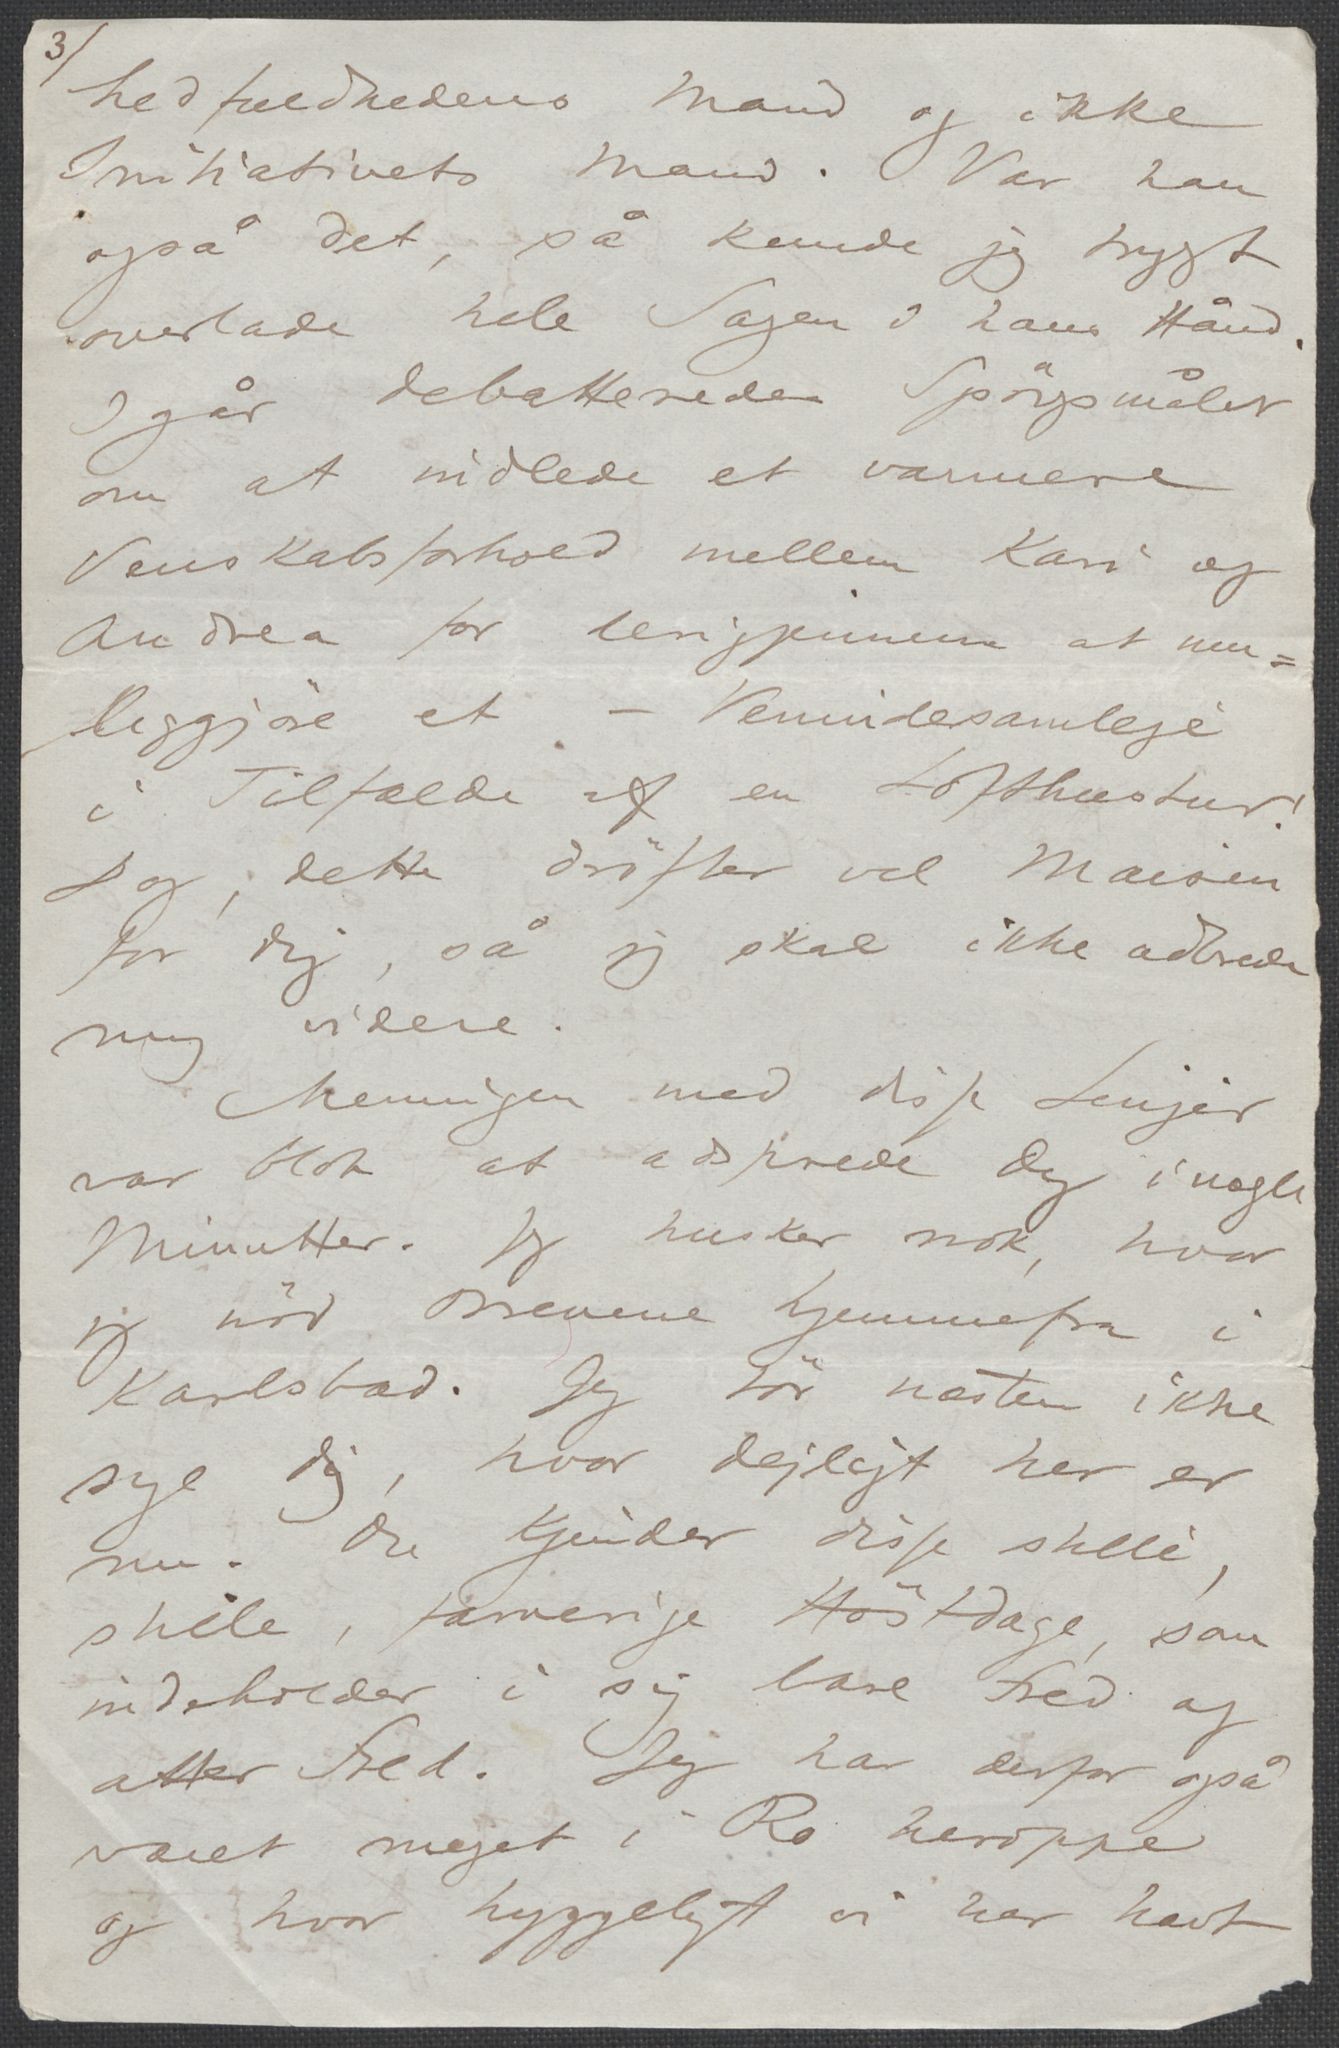 3/
hedfuldhedens Mand og ikke
Initiativets Mand. Var han
også det, så kunde jeg trygt
overlade hele Sagen i hans Hånd.
Igår debatteredes Spörgsmålet
om at indlede et varmere
Venskabsforhold mellem Kari og
Andrea for derigjennem at mu=
liggjöre et – Venindesamleje
i Tilfælde af en Lofthustur!
Dog, dette dröfter vel
for dig, så jeg skal ikke udbrede
mig videre.
Meningen med disse Linjer
var blot at adsprede dig i nogle
Minutter. Jeg husker nok, hvor
jeg nöd Brevene hjemmefra i
Karlsbad. Jeg tör næsten ikke
sige dig, hvor dejligt her er
nu. Du kjender disse stille,
stille, farverige Höstdage, som
indeholder i sig bare Fred og
atter Fred. Jeg har derfor også
været meget i Ro heroppe
og hvor hyggeligt vi har havt